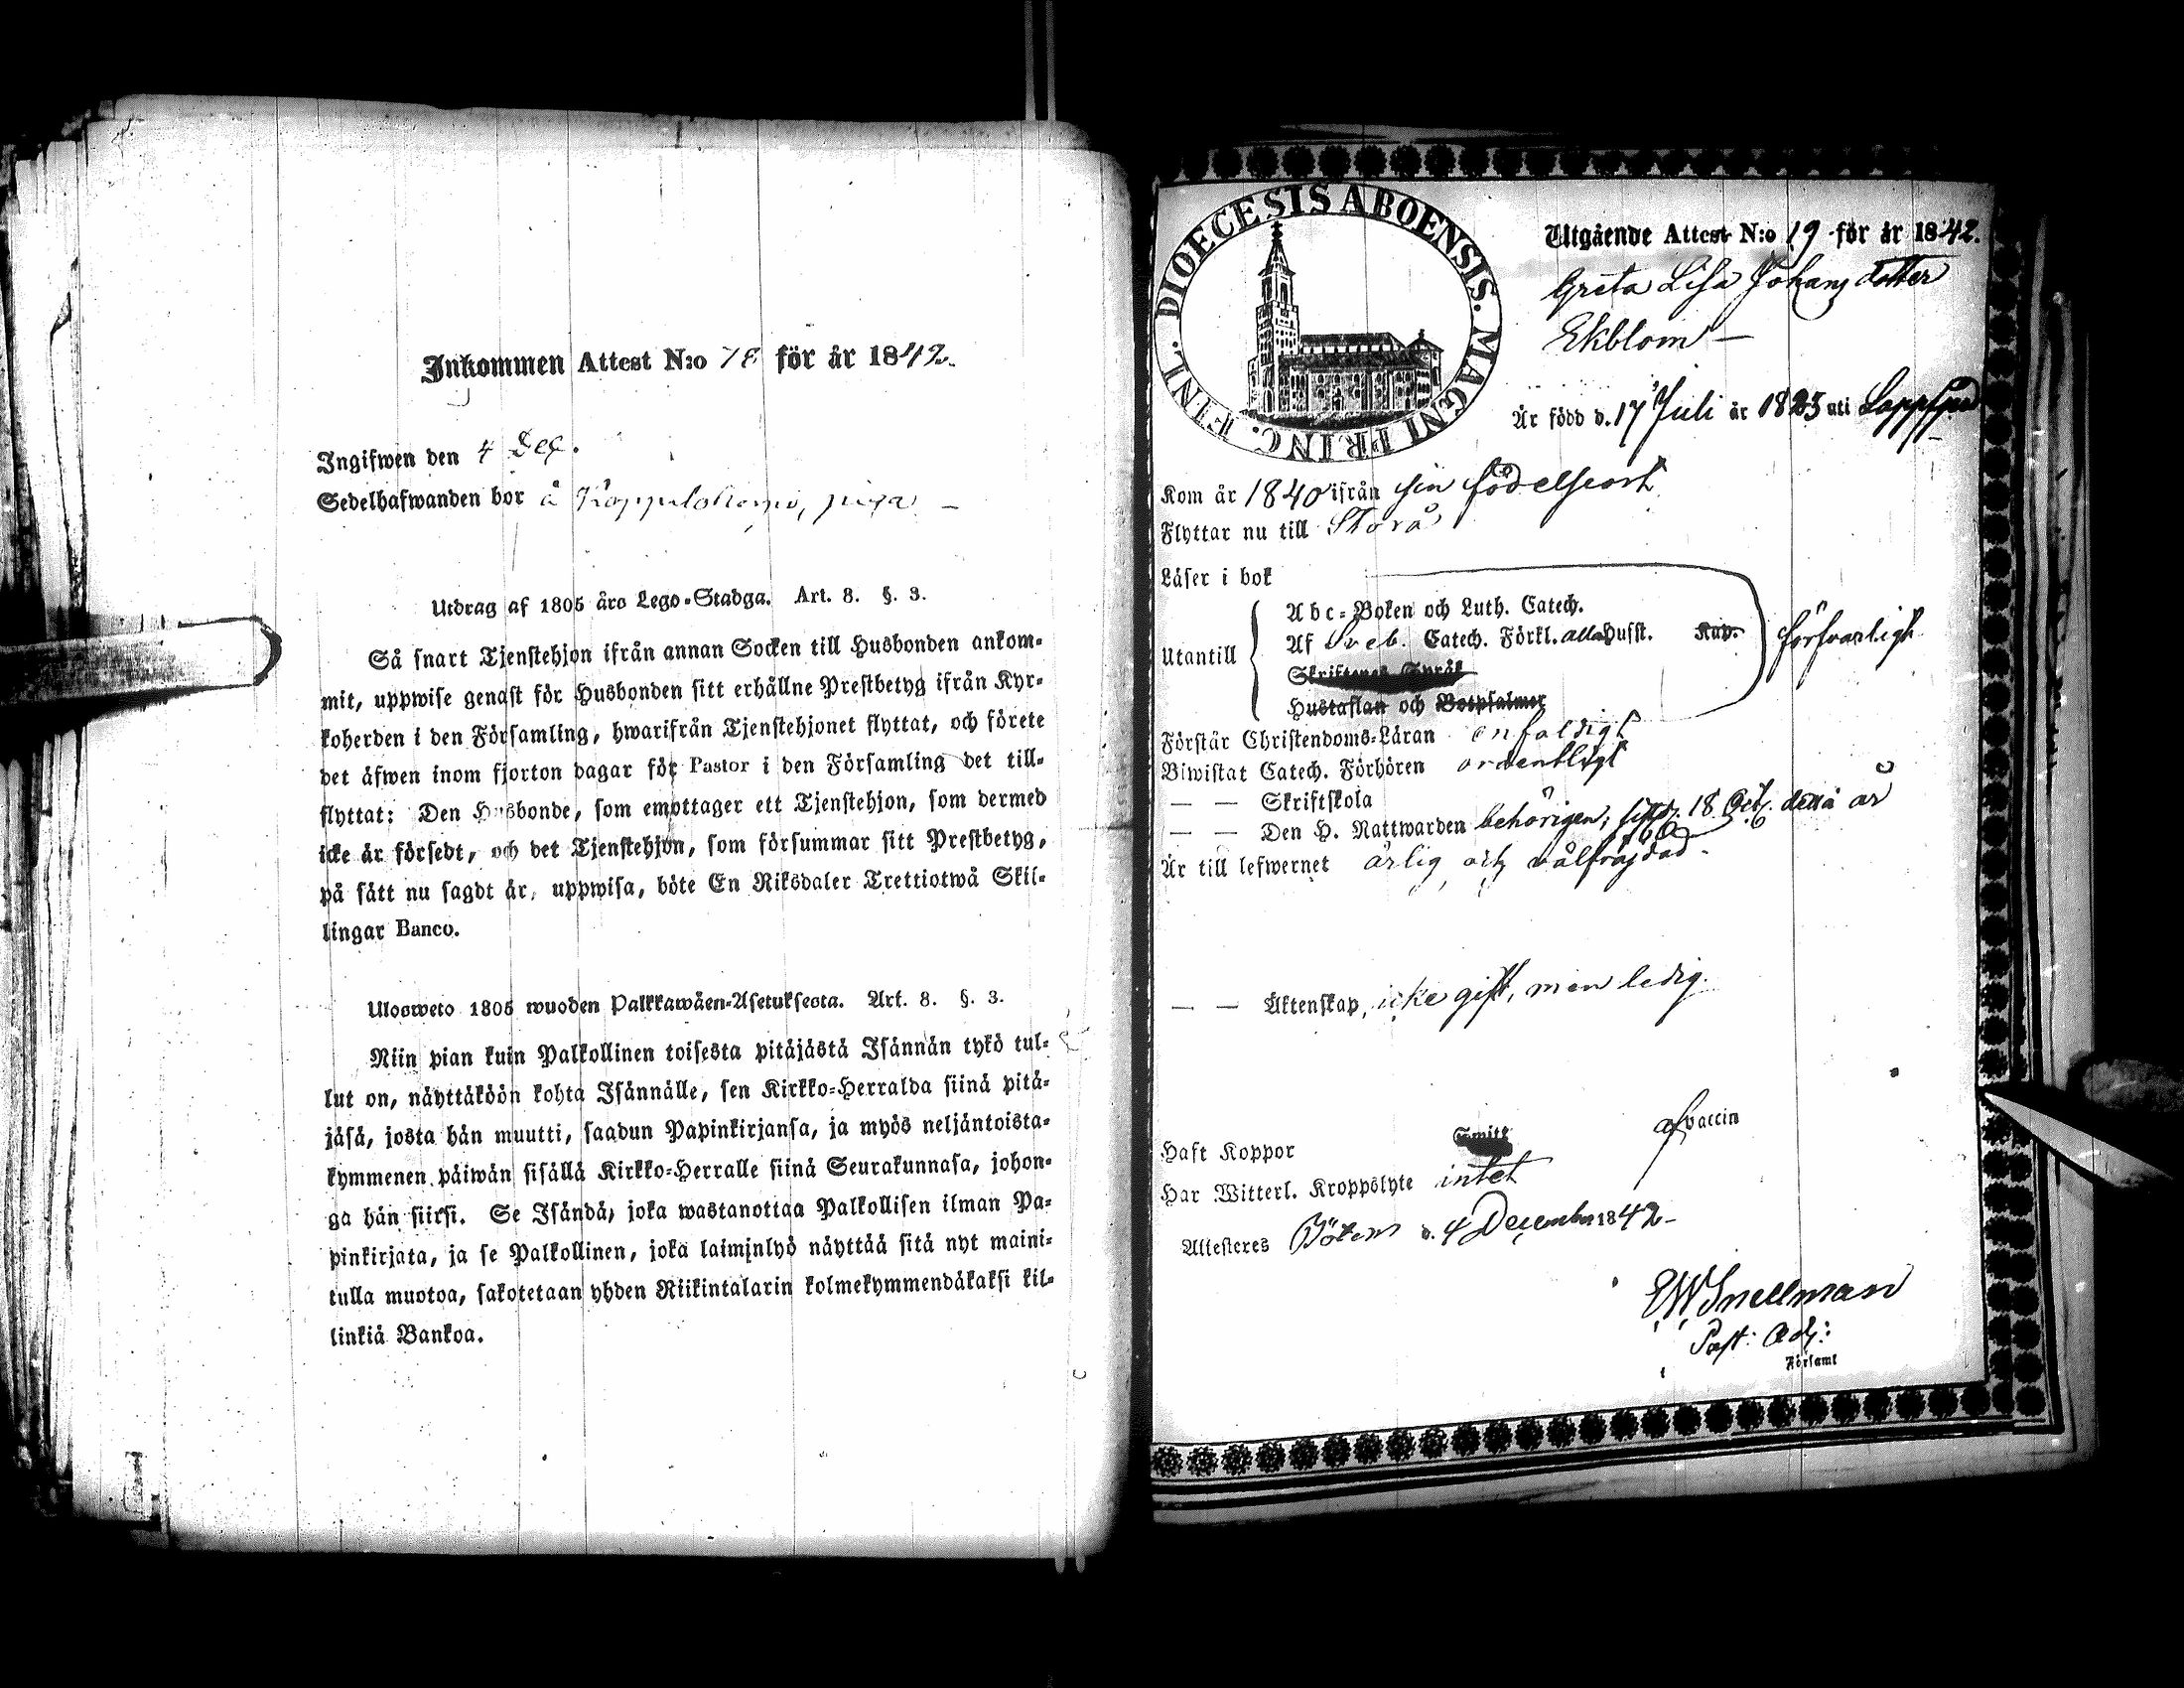 Inkommen Attest N:o 78 för år 1842.
Ingifwen den 4 Dec.
Sedelhafwanden bor å piga
Utdrag af 1805 års Lego-Stadga. Art. 8. §. 3.
Så snart Tjenstehjon ifrån annan Socken till Husbonden ankom-
mit, uppwise genast för Husbonden sitt erhållne Prestbetyg ifrån Kyr-
koherden i den Församling, hwarifrån Tjenstehjonet flyttat, och förete
det äfwen inom fjorton dagar för Pastor i den Församling det till-
flyttat: Den Husbonde, som emottager ett Tjenstehjon, som dermed
icke är försedt, och det Tjenstehjon, som försummar sitt Prestbetyg,
på sätt nu sagdt är, uppwisa, böte En Riksdaler Trettiotwå Skil-
lingar Banco.
Ulosweto 1805 wuoden Palkkawäen-Asetuksesta. Art. 8. §. 3.
Niin pian kuin Palkollinen toisesta pitäjästä Isännän tykö tul-
lut on, näyttäköön kohta Isännälle, sen Kirkko-Herralda siinä pitä-
jäsä, josta hän muutti, saadun Papinkirjansa, ja myös neljäntoista-
kymmenen päiwän sisällä Kirkko-Herralle siinä Seurakunnasa, johon-
ga hän siirsi. Se Isändä, joka wastanottaa Palkollisen ilman Pa-
pinkirjata, ja se Palkollinen, joka laiminlyö näyttää sitä nyt maini-
tulla muotoa, sakotetaan yhden Riikintalarin kolmekymmendäkaksi kil-
linkiä Bankoa.
DIOECESIS ABOENSIS. MAGNI PRINC. FINL.
Utgående Attest N:o 19 för år 1842.
Greta Lisa Johansdotter
Ekblom
Är född d. 17 Juli år 1823 uti Lappfjerd
Kom år 1840 ifrån sin födelseort
Flyttar nu till Storå
Läser i bok
Utantill
Abc-Boken och Luth. Catech.
Af Sveb. Catech. Förkl. alla Husst. Kap.
Skriftenes Språk
Hustaflan och Botpsalmer
försvarligt
Förstår Christendoms-Läran enfaldigt
Biwistat Catech. Förhören ordentligt
— — Skriftskola
— — Den H. Nattwarden behörigen, sistl. 18 Oct. detta år
Är till lefwernet ärlig och välfrejdad.
— — Äktenskap, icke gift, men ledig.
Haft Koppor Smitt af vaccin
Har Witterl. Kroppslyte intet
Attesteres Bötom d. 4 December 1842
EW Snellman
Past: Adj:
Församl